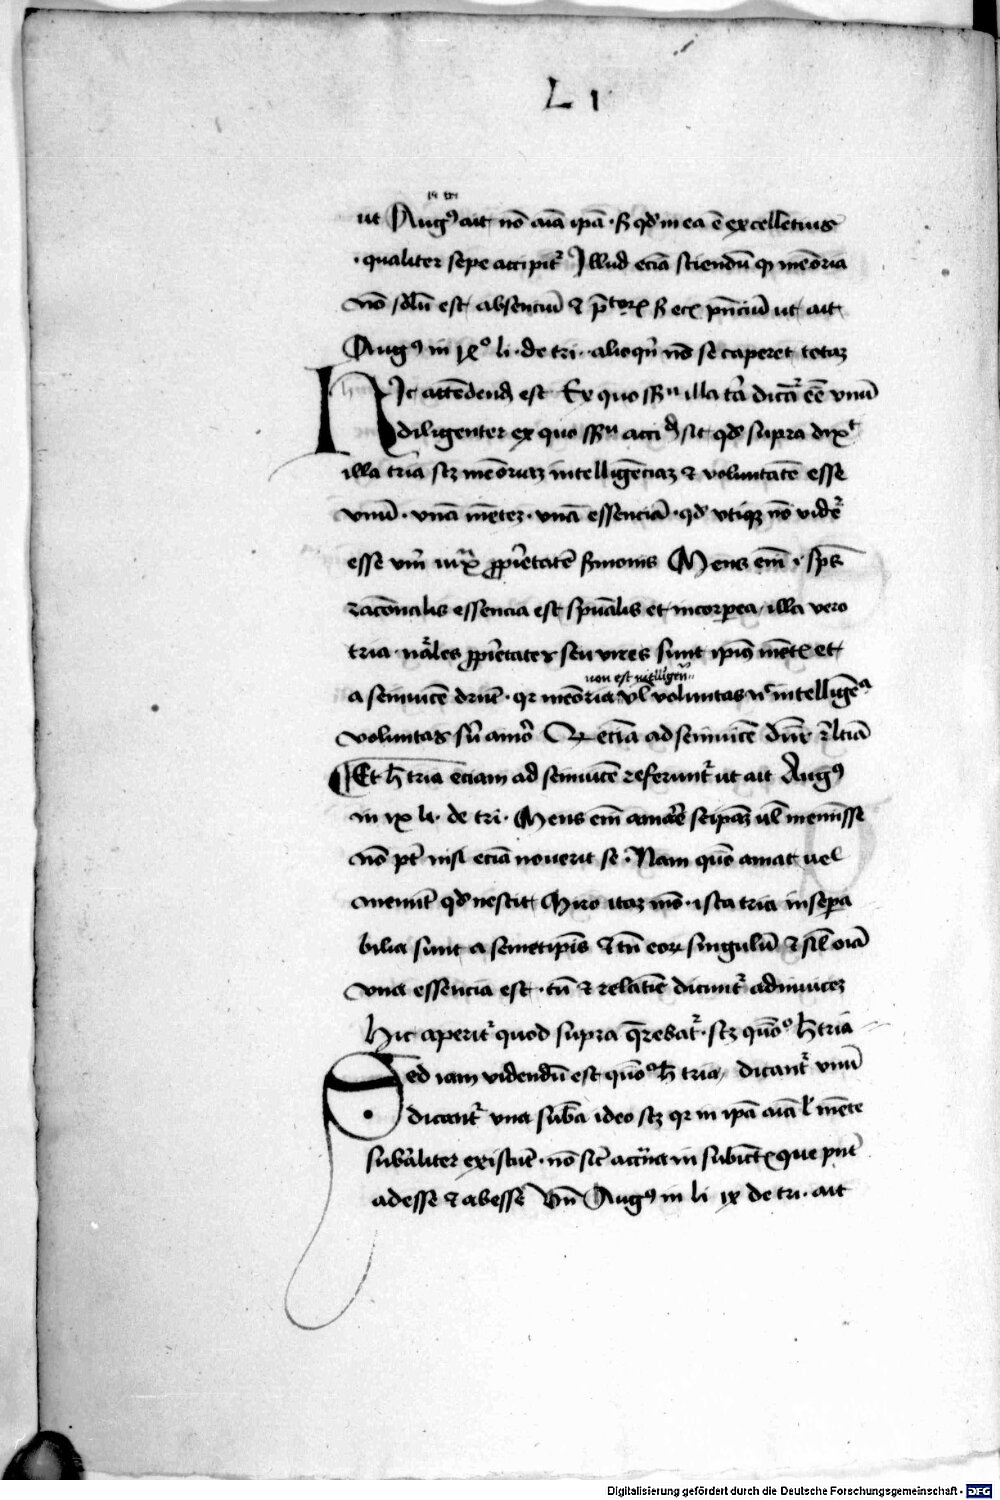 L I
ut Augꝰ ait nō aīa ipā · sꝫ qd' in ea ē excellētius
· qualiter sepe accipit᷑ Illud eciā sciendū ꝙ mēoria
nō solū est absenciū & p̄toꝝ sꝫ ecī pn̄ciū ut ait
Augꝰ in ix° li · de tri · alioqn̄ nō sē caperet totaꝫ
Hic attēdend est Ex quo illa tīa dicāt᷑ eē vnū
diligenter ex quo sit qd' supra dix̄t
illa tria scꝫ mēoriaꝫ intelligēciaꝫ & voluntatē esse
vnū · vnā mētēꝫ · vnā essenciā · qd' vtiqꝫ nō vidēt᷑
esse vn̄ iux̄ ꝓp̄rietatē sm̄onis Mens em̄ · i · sp̄s
racōnalis essencia est sp̄ualis et incorporea / illa vero
tria · nāles ꝓp̄rietates seu vires sunt ipiꝰ mētꝭ et
non est intelligēn
a seinuicē dr̄nt · qr mēoria vl̄ voluntas nō intelligēa
voluntas sīn amōr Qr eciā ad seinuicē dn̄r r̄ltiā
¶ Et h̄ tria eciam ad seinuicē referunt᷑ ut ait Augꝰ
in ix li · de tri · Mens em̄ amare seipaꝫ ul̄ meminisse
nō pt̄ nisi eciā nouerit se · Nam quō amat uel
meminit qd' nescit Miro itaqꝫ mō · ista tria insepa
bilia sunt a semetipīs & tn̄ eoꝝ singulū & sil̄ oīa
vna essencia est · tn̄ & relatīe dicunt᷑ adinuiceꝫ
Hic aperit᷑ quod supra q̄rebat᷑ · scꝫ quō° h̄ tria
Sed iam videndū est quō° h̄ tria / dicant᷑ vnū
dicant᷑ vna subā ideo scꝫ qr in ipā aīā l' mēte
subāliter existūt · nō sic̄ accn̄tia in subiectꝭ que pn̄t
adesse & abesse Vn̄ Augꝰ in li ix de tri · ait
Digitalisierung gefördert durch die Deutsche Forschungsgemeinschaft · DFG